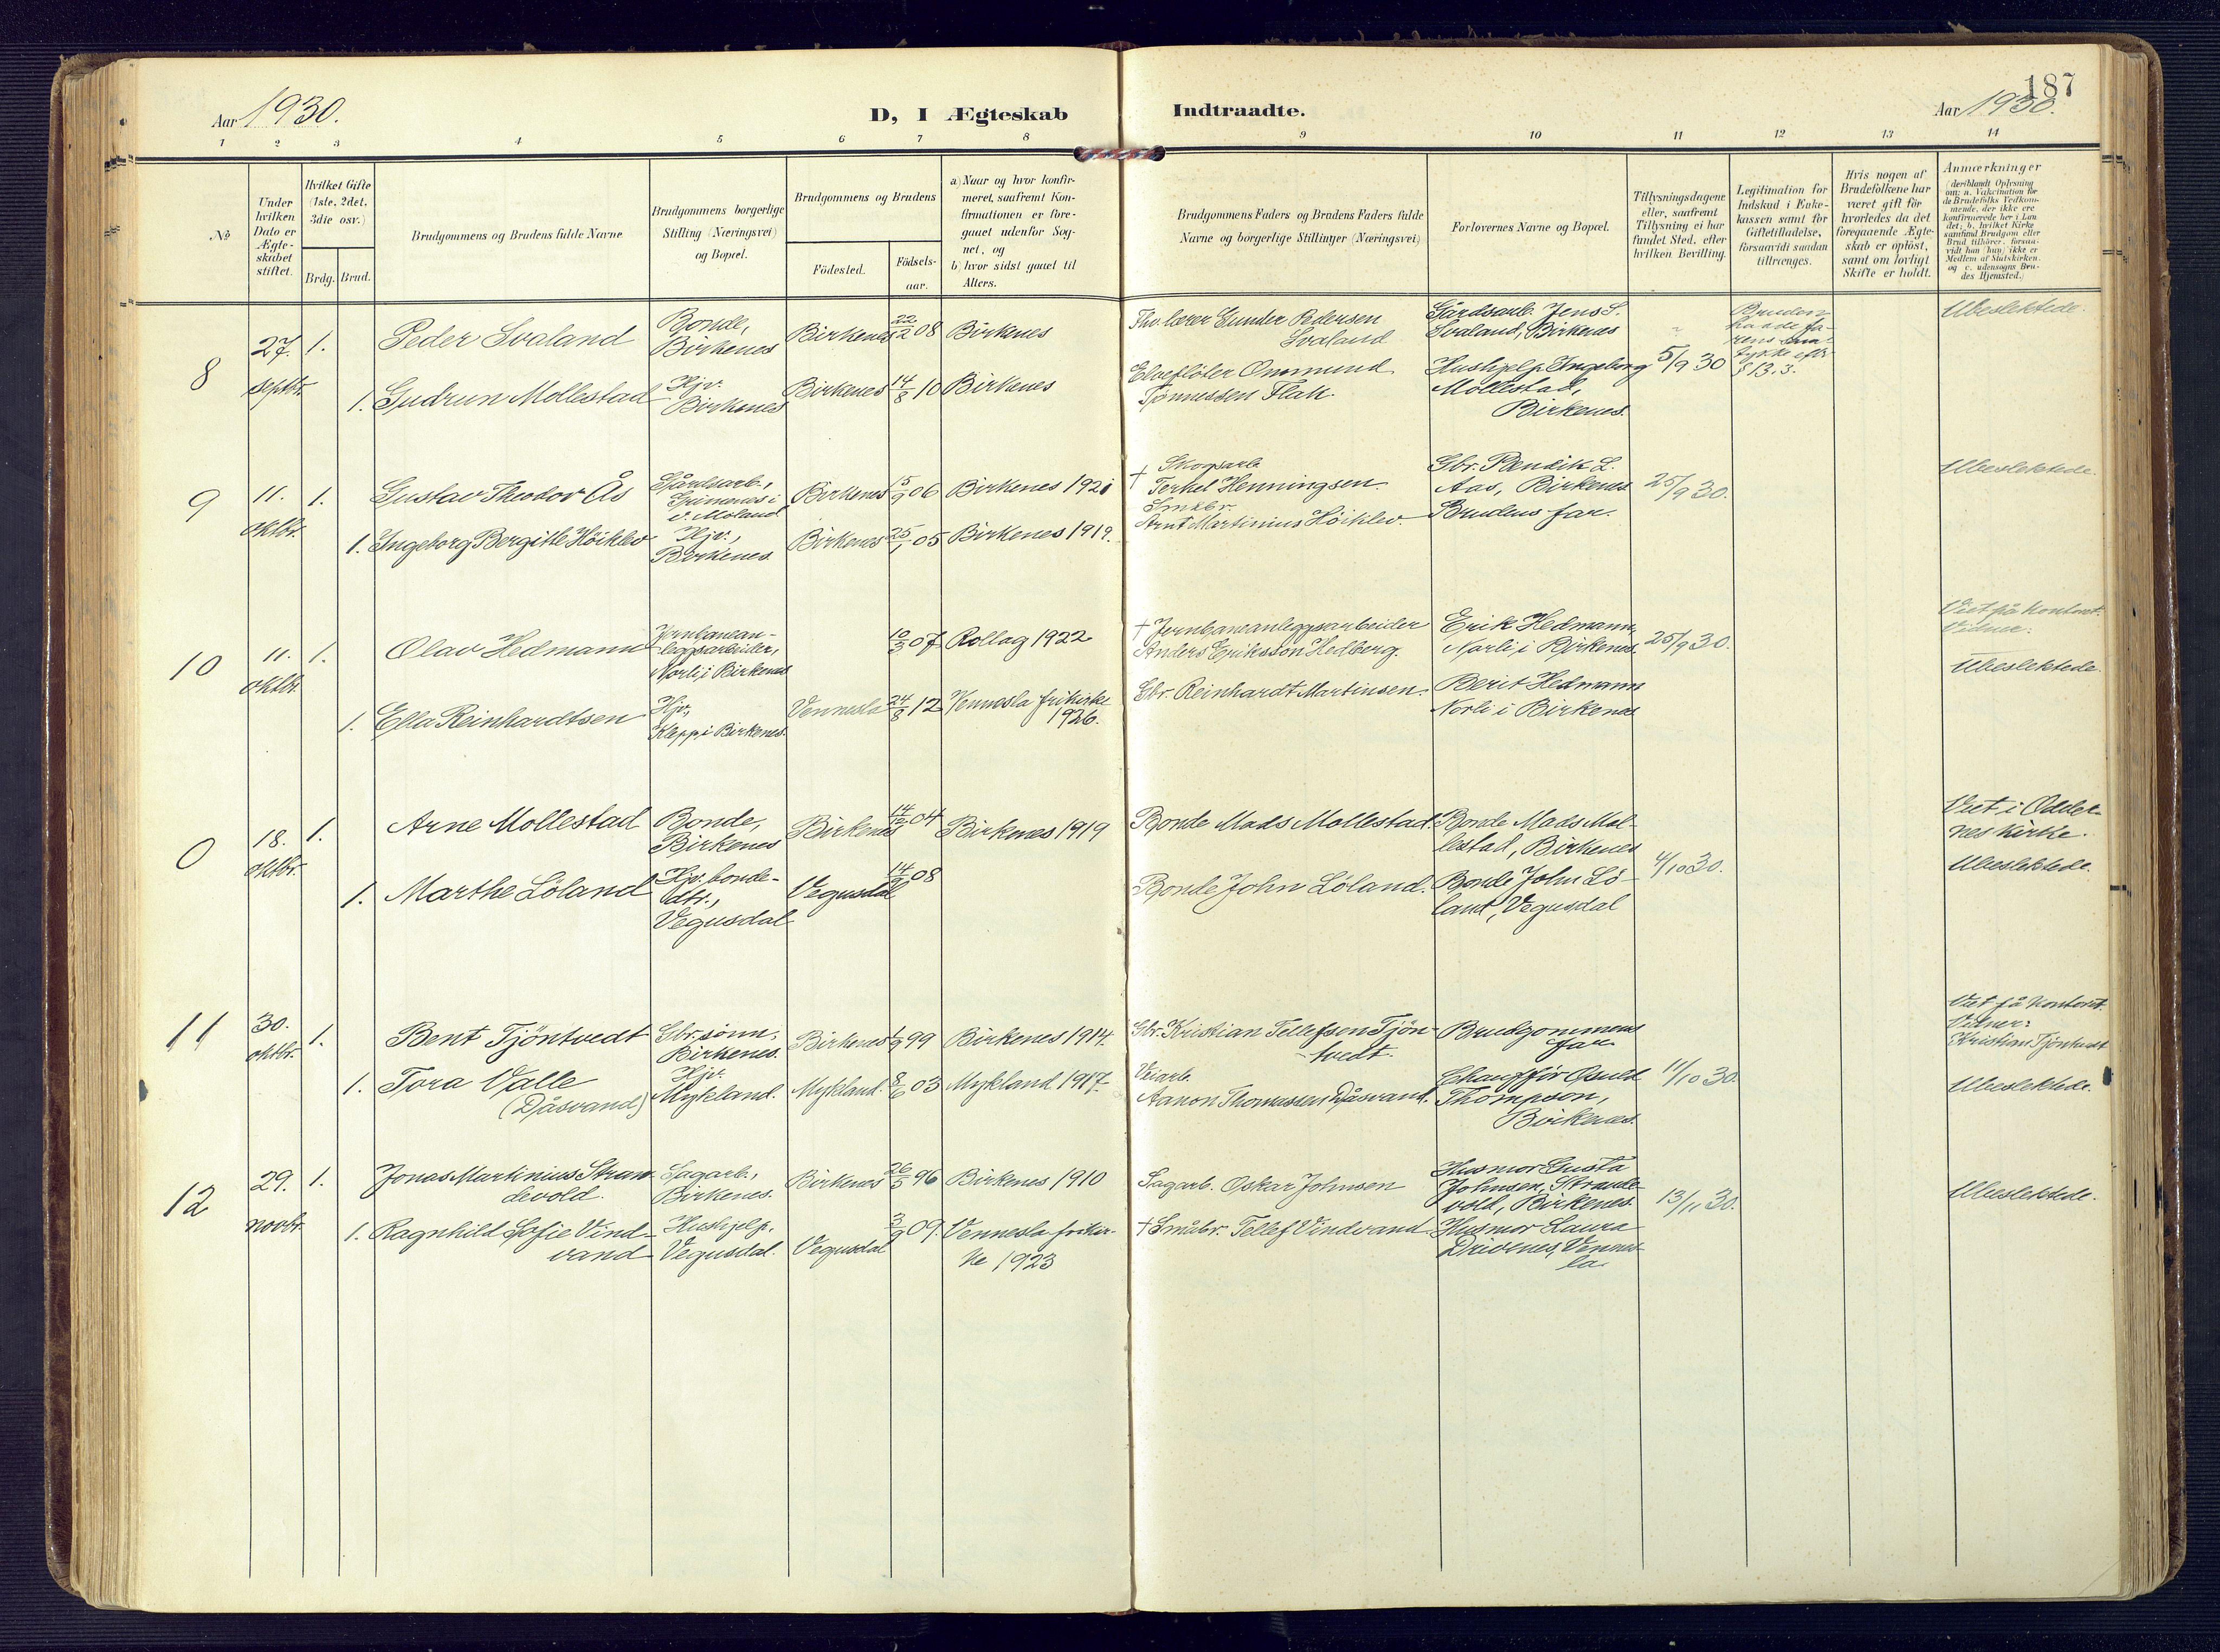 187
Aar 1930.
D, I Ægteskab Indtraadte.
Aar 1930.
1 2 3 4 5 6 7 8 9 10 11 12 13 14
No
Under hvilken Dato er Ægte-skabet stiftet.
Hvilket Gifte (1ste, 2det, 3die osv.)
Brdg. Brud.
Brudgommens og Brudens fulde Navne.
Brudgommens borgerlige Stilling (Næringsvei) og Bopæl.
Brudgommens og Brudens
Födested.
Födsels-aar.
a) Naar og hvor konfir-meret, saafremt Kon-firmationen er fore-gaaet udenfor Sog-net, og
b) hvor sidst gaaet til Alters.
Brudgommens Faders og Brudens Faders fulde Navne og borgerlige Stillinger (Næringsvei)
Forlovernes Navne og Bopæl.
Tillysningsdagene eller, saafremt Tillysning ei har fundet Sted, efter hvilken Bevilling.
Legitimation for Indskud i Enke-kassen samt for Giftetilladelse, forsaavidt saadan tiltrænges.
Hvis nogen af Brudefolkene har været gift før hvorledes da det foregaaende Ægte-skab er oplöst, samt om lovligt Skifte er holdt.
Anmærkninger (deriblandt Oplysning om: a. Vakcination for de Brudefolks Vedkom-mende, der ikke ere konfirmerede her i Lan-det; b. hvilket Kirke-samfund Brudgom eller Brud tilhörer, forsaa-vidt han (hun) ikke er Medlem af Statskirken, og c. udensogns Bru-des Hjemsted.)
8
27. septbr.
1. Peder Svaland
Bonde, Birkenes
Birkenes 22/2 08 Birkenes
Fhv. lærer Gunder Pedersen Svaland
Gårdsarb. Jens S. Svaland, Birkenes
5/9 30
Bruden hadde fa-rens sam-tykke eftr. § 13.3.
Ubeslektede.
1. Gudrun Mollestad
Hjv. Birkenes
Birkenes 14/8 10 Birkenes
Elvefløter Onsmund Tjønnessen Flak.
Hushjelp Ingeborg Mollestad, Birkenes.
9
11. oktbr.
1. Gustav Theodor Ås
Gårdsarb., Grimenes i v. Moland
Birkenes 5/9 06 Birkenes 1921
† Skogsarb. Terkel Henningsen
Gbr. Bendik L. Aas, Birkenes
25/9 30.
Ubeslektede.
1. Ingeborg Bergitte Höiklev
Hjv., Birkenes.
Birkenes 25/1 05 Birkenes 1919.
Småbr. Arnt Martinius Höiklev.
Brudens far.
10
11. oktbr.
1. Olav Hedmann
Jernbanean-leggsarbeider, Norli i Birkenes
10/3 07 Rollag 1922
† Jernbaneanleggsarbeider Anders Eriksson Hedberg.
Erik Hedmann, Norli i Birkenes.
25/9 30.
Viet på kontoret. Vidner:
Ubeslektede.
1. Ella Reinhardtsen
Hjv., Klepp i Birkenes.
Vennesla 24/8 12 Vennesla frikirke 1926.
Gbr. Reinhardt Martinsen.
Berit Hedmann Norli i Birkenes
0
18. oktbr.
1. Arne Mollestad
Bonde, Birkenes
Birkenes 14/12 04 Birkenes 1919
Bonde Mads Mollestad.
Bonde Mads Mol-lestad, Birkenes
4/10 30.
Viet i Odder-nes kirke.
Ubeslektede.
1. Marthe Löland
Hjv. bonde-dtr., Vegusdal
Vegusdal 14/9 08
Bonde John Löland.
Bonde John Lö-land, Vegusdal
11
30. oktbr.
1. Bent Tjöntvedt
Gbr.sönn, Birkenes.
Birkenes 1/9 99 Birkenes 1914.
Gbr. Kristian Tellefsen Tjön-tvedt.
Brudgommens far
11/10 30.
Viet på kontoret. Vidner: Kristian Tjöntvedt
Ubeslektede.
1. Tora Valle (Djåsvand)
Hjv. Mykland.
Mykland. 8/6 03 Mykland 1917.
Veiarb. Aanon Thomassen Djåsvand.
Chaufför Osuld Thompson, Birkenes.
12
29. novbr.
1. Jonas Martinius Stran-devold.
Sagarb., Birkenes.
Birkenes 26/5 96 Birkenes 1910
Sagarb. Oskar Johnsen
Husmor Gusta Johnsen, Strande-vold, Birkenes.
13/11 30.
Ubeslektede.
1. Ragnhild Sofie Vind-vand
Hushjelp, Vegusdal.
Vegusdal 3/9 09. Vennesla frikir-ke 1923
† Småbr. Tellef Vindvand
Husmor Laura Drivenes, Vennes-la.